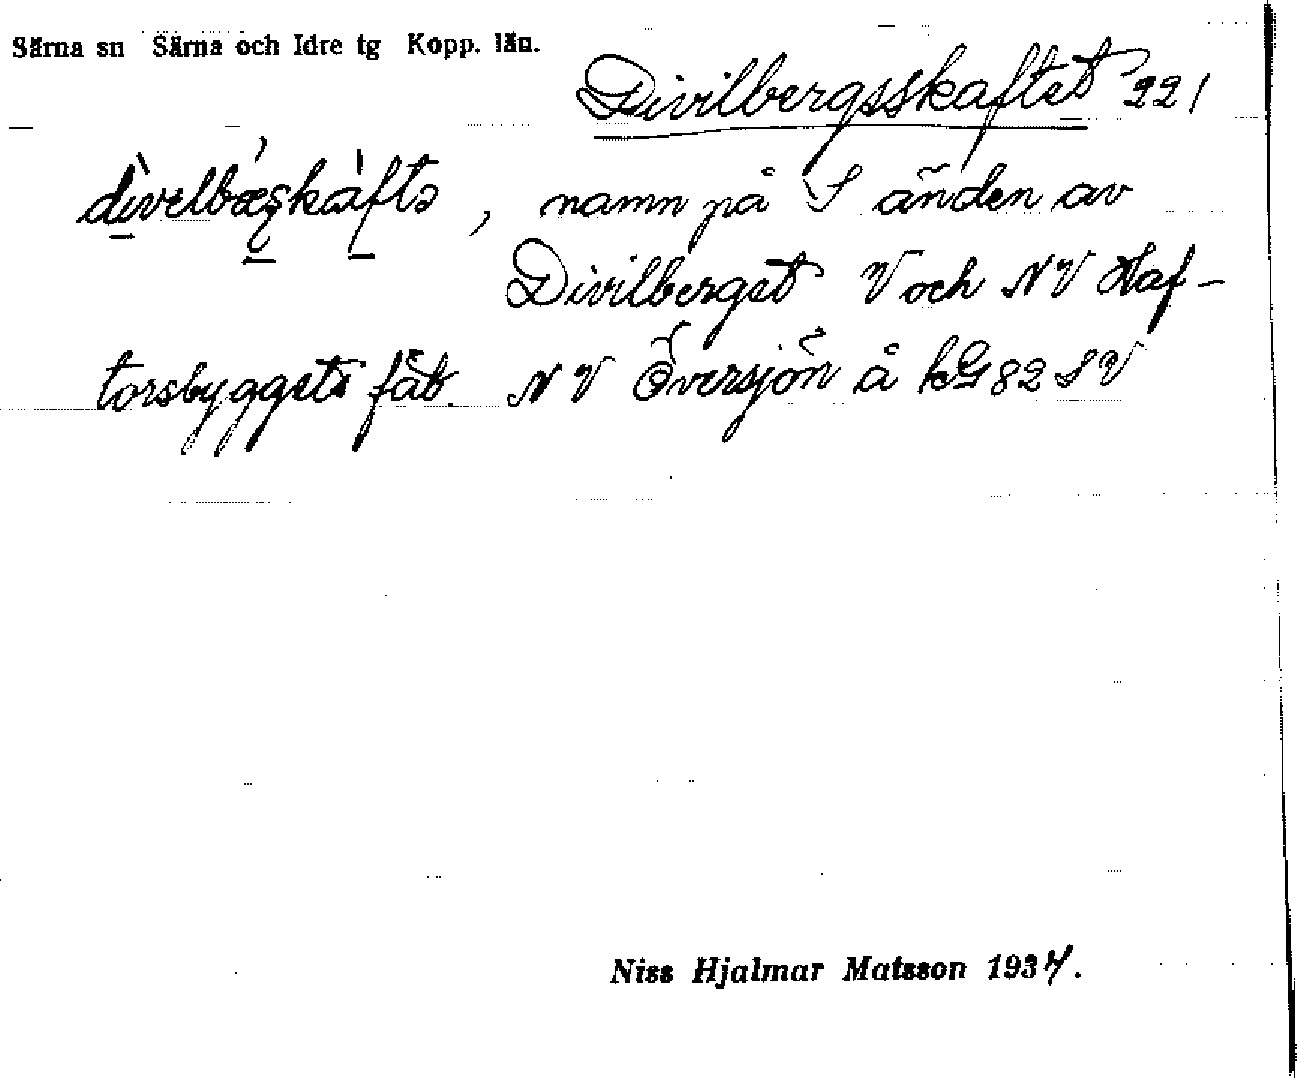 Särna sn Särna och Idre tg Kopp. län.
Divilbergsskaftet 221
, namn på S änden av
Divilberget V och NV Haf-
torsbyggets fäb. NV Översjön å kG 82 SV
Niss Hjalmar Matsson 1934.